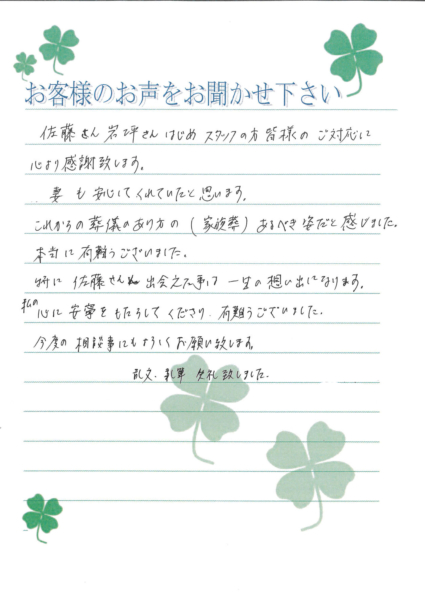 お客様のお声をお聞かせ下さい
佐藤さん 岩坪さん はじめ スタッフの方 皆様の ご対応に
心より感謝致します。
妻も安心してくれていたと思います。
これからの葬儀のあり方の(家族葬)あるべき姿だと感じました。
本当に有難うございました。
特に佐藤さん 出会えた事は一生の想い出になります。
私の
心に安寧をもたらしてくださり、有難うございました。
今度の相談事にもよろしくお願い致します。
乱文、乱筆 失礼致しました。